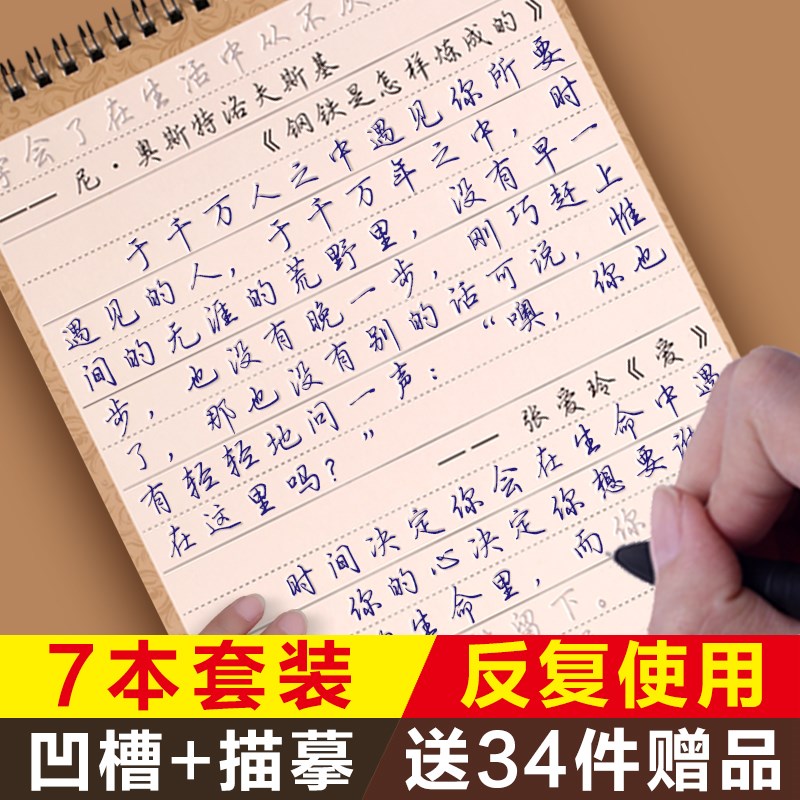 字会了在生活中从不
—— 尼·奥斯特洛夫斯基
《钢铁是怎样炼成的》
于千万人之中遇见你所要
遇见的人，于千万年之中，时
间的无涯的荒野里，没有早一
步，也没有晚一步，刚巧赶上
了，那也没有别的话可说，惟
有轻轻地问一声：“噢，你也
在这里吗？”
—— 张爱玲《爱》
时间决定你会在生命中遇
你的心决定你想要谁
生命里，而你
留下。
7本套装
反复使用
凹槽+描摹
送34件赠品